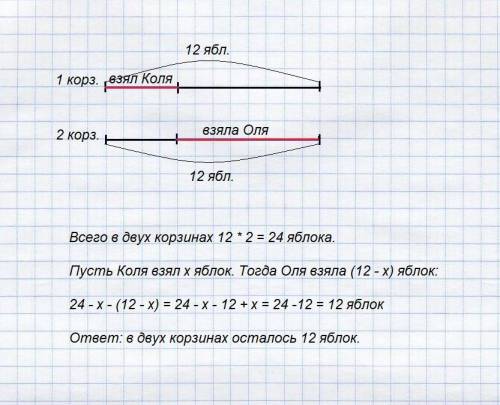 12 ябл.
1 корз. взял Коля
2 корз. взяла Оля
12 ябл.
Всего в двух корзинах 12 * 2 = 24 яблока.
Пусть Коля взял х яблок. Тогда Оля взяла (12 - х) яблок:
24 - х - (12 - х) = 24 - х - 12 + х = 24 -12 = 12 яблок
Ответ: в двух корзинах осталось 12 яблок.